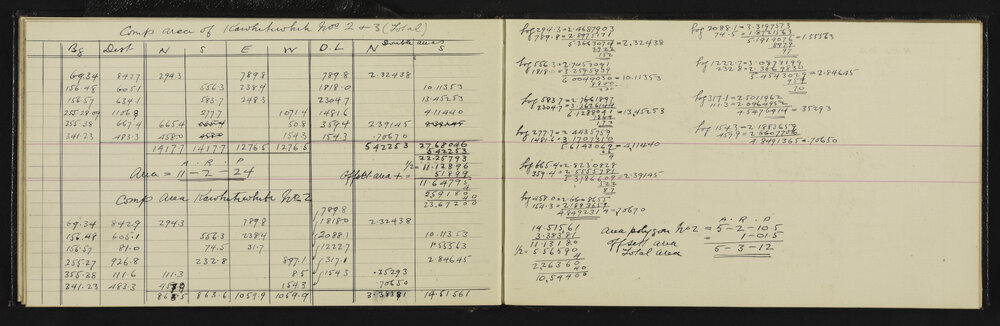 Comp area of Kawhitiwhitι Nos 2 + 3 (Total)
Bg Dist N S E W D.L N Double areas S
69.34 842.9 294.3 789.8 789.8 2.32438
156.48 605.1 556.3 238.4 1818.0 10.11353
156.57 634.1 583.7 248.3 2304.7 13.45253
255.28.09 1106.8 277.7 1071.4 1481.6 4.11440
255.38 667.4 665.4 50.8 359.4 2.39145
341.23 483.3 458.0 154.3 154.3 .70650
1417.7 1417.7 1276.5 1276.5 5.42253 27.68046
5.42253
22.25793
A . R . P
½= 11.12896
Area = 11 - 2 - 24 Offset area + = 51899
11.64795
4
2.59180
40
23.67200
Comp area Kawhitiwhiti No 2
69.34 842.9 294.3 789.8 789.8
156.48 605.1 556.3 238.4 1818.0 2.32438 10.11353
156.57 81.0 74.5 31.7 2088.1 1.55563
255.27 926.8 232.8 897.1 1222.7 2.84645
355.38 111.6 111.3 8.5 317.1 .35293
341.23 483.3 154.3 154.3 .70650
863.6 1059.9 1059.9 3.38381 14.51561
log 294.3 = 2.4687903
789.8 = 2.8975171
5.3663074 = 2.32438
log 556.3 = 2.7453091
1818.0 = 3.2595939
6.0049030 = 10.11353
log 583.7 = 2.7661897
2304.7 = 3.3626144
6.1288041 = 13.45253
log 277.7 = 2.4435759
1481.6 = 3.1707310
5.6143069 = 4.11440
log 665.4 = 2.8230828
359.4 = 2.5555781
5.3786609 = 2.39145
log 458.0 = 2.6608655
154.3 = 2.1883659
4.8492314 = .70650
14.51561
3.38381
11.13180
½= 5.56590
4
2.26360
40
10.54400
log 2088.1 = 3.3197513
74.5 = 1.8721563
5.1919076 = 1.55563
log 1222.7 = 3.0873199
232.8 = 2.3669830
5.4543029 = 2.84645
log 317.1 = 2.5011962
111.3 = 2.0464952
4.5476914 = .35293
log 154.3 = 2.1883659
457.9 = 2.6607706
4.8491365 = .70650
A . R . P
Area polygon No 2 = 5 - 2 - 10.5
Offset area = 1 - 01.5
Total area 5 - 3 - 12